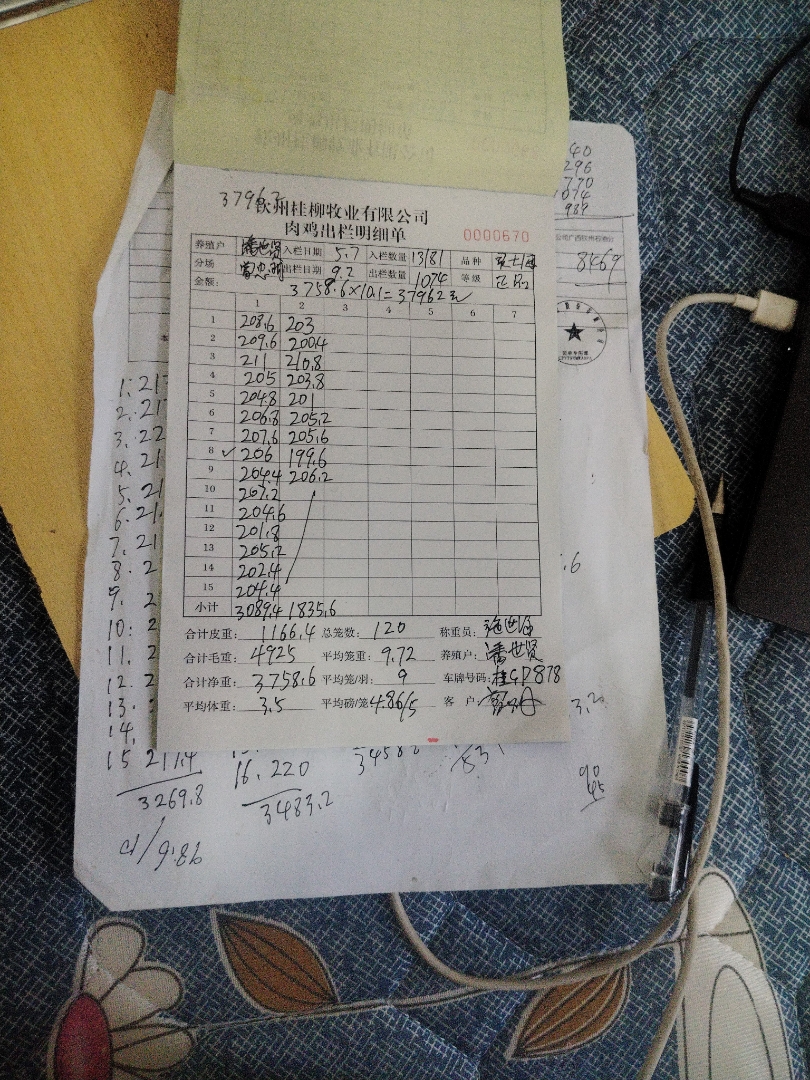 40
296
770
074
989
3796
钦州桂柳牧业有限公司
肉鸡出栏明细单
0000670
养殖户 潘世贤 入栏日期 5.7 入栏数量 13181 品种
分场 出栏日期 9.2 出栏数量 1074 等级 正品
金额: 3758.6×10.1=37962元
8469
1 2 3 4 5 6 7
1 208.6 203
2 209.6 200.4
3 211 210.8
4 205 203.8
5 204.8 201
6 206.8 205.2
7 207.6 205.6
8 ✓ 206 199.6
9 204.4 206.2
10 207.2
11 204.6
12 201.8
13 205.2
14 202.4
15 204.4
小计 3089.4 1835.6
合计皮重: 1166.4 总笼数: 120 称重员:
合计毛重: 4925 平均笼重: 9.72 养殖户: 潘世贤
合计净重: 3758.6 平均笼/羽: 9 车牌号码: 桂GP878
平均体重: 3.5 平均磅/笼 4.86/5 客户:
1. 217
2. 217
3. 22
4. 21
5. 21
6. 21
7. 21
8. 2
9. 2
10: 2
11. 2
12. 2
13.
14.
15 217.4
3269.8
9.86
16. 220
3483.2
90
45